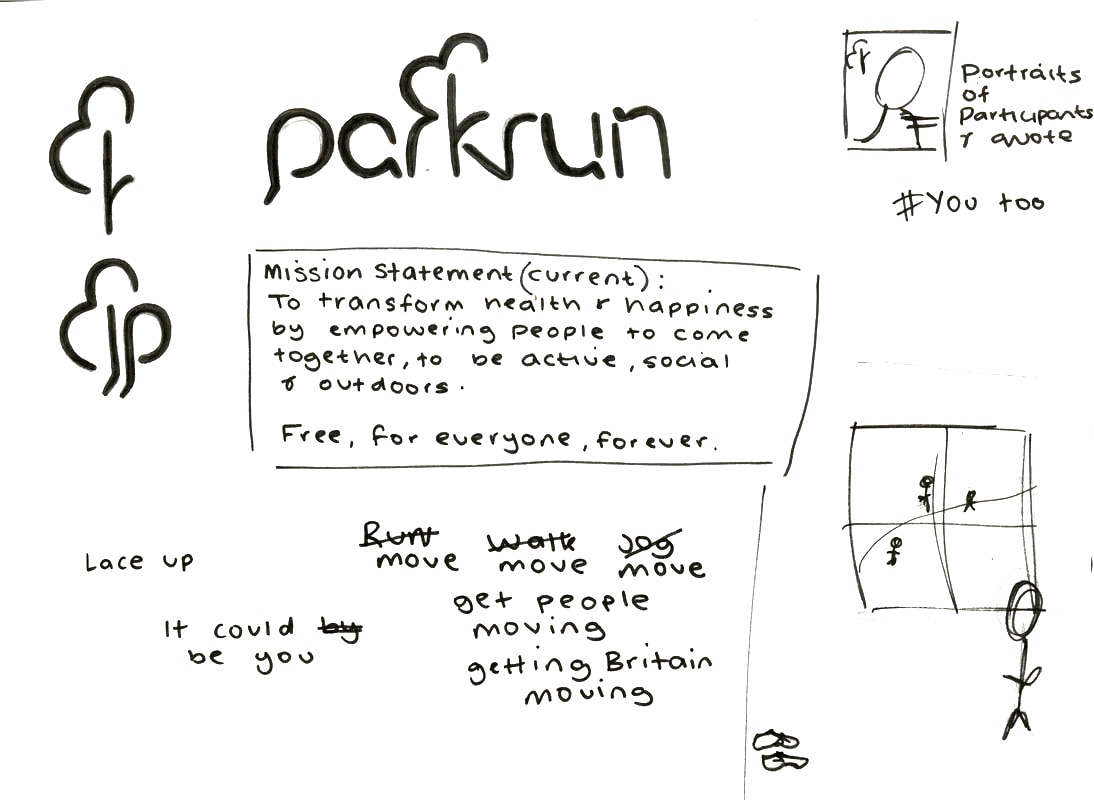 parkrun
Portraits
of
Participants
& quote
#You too
Mission Statement (current):
To transform health & happiness
by empowering people to come
together, to be active, social
& outdoors.
Free, for everyone, forever.
Lace up
Run Walk Jog
move move move
get people
moving
It could by
be you
getting Britain
moving